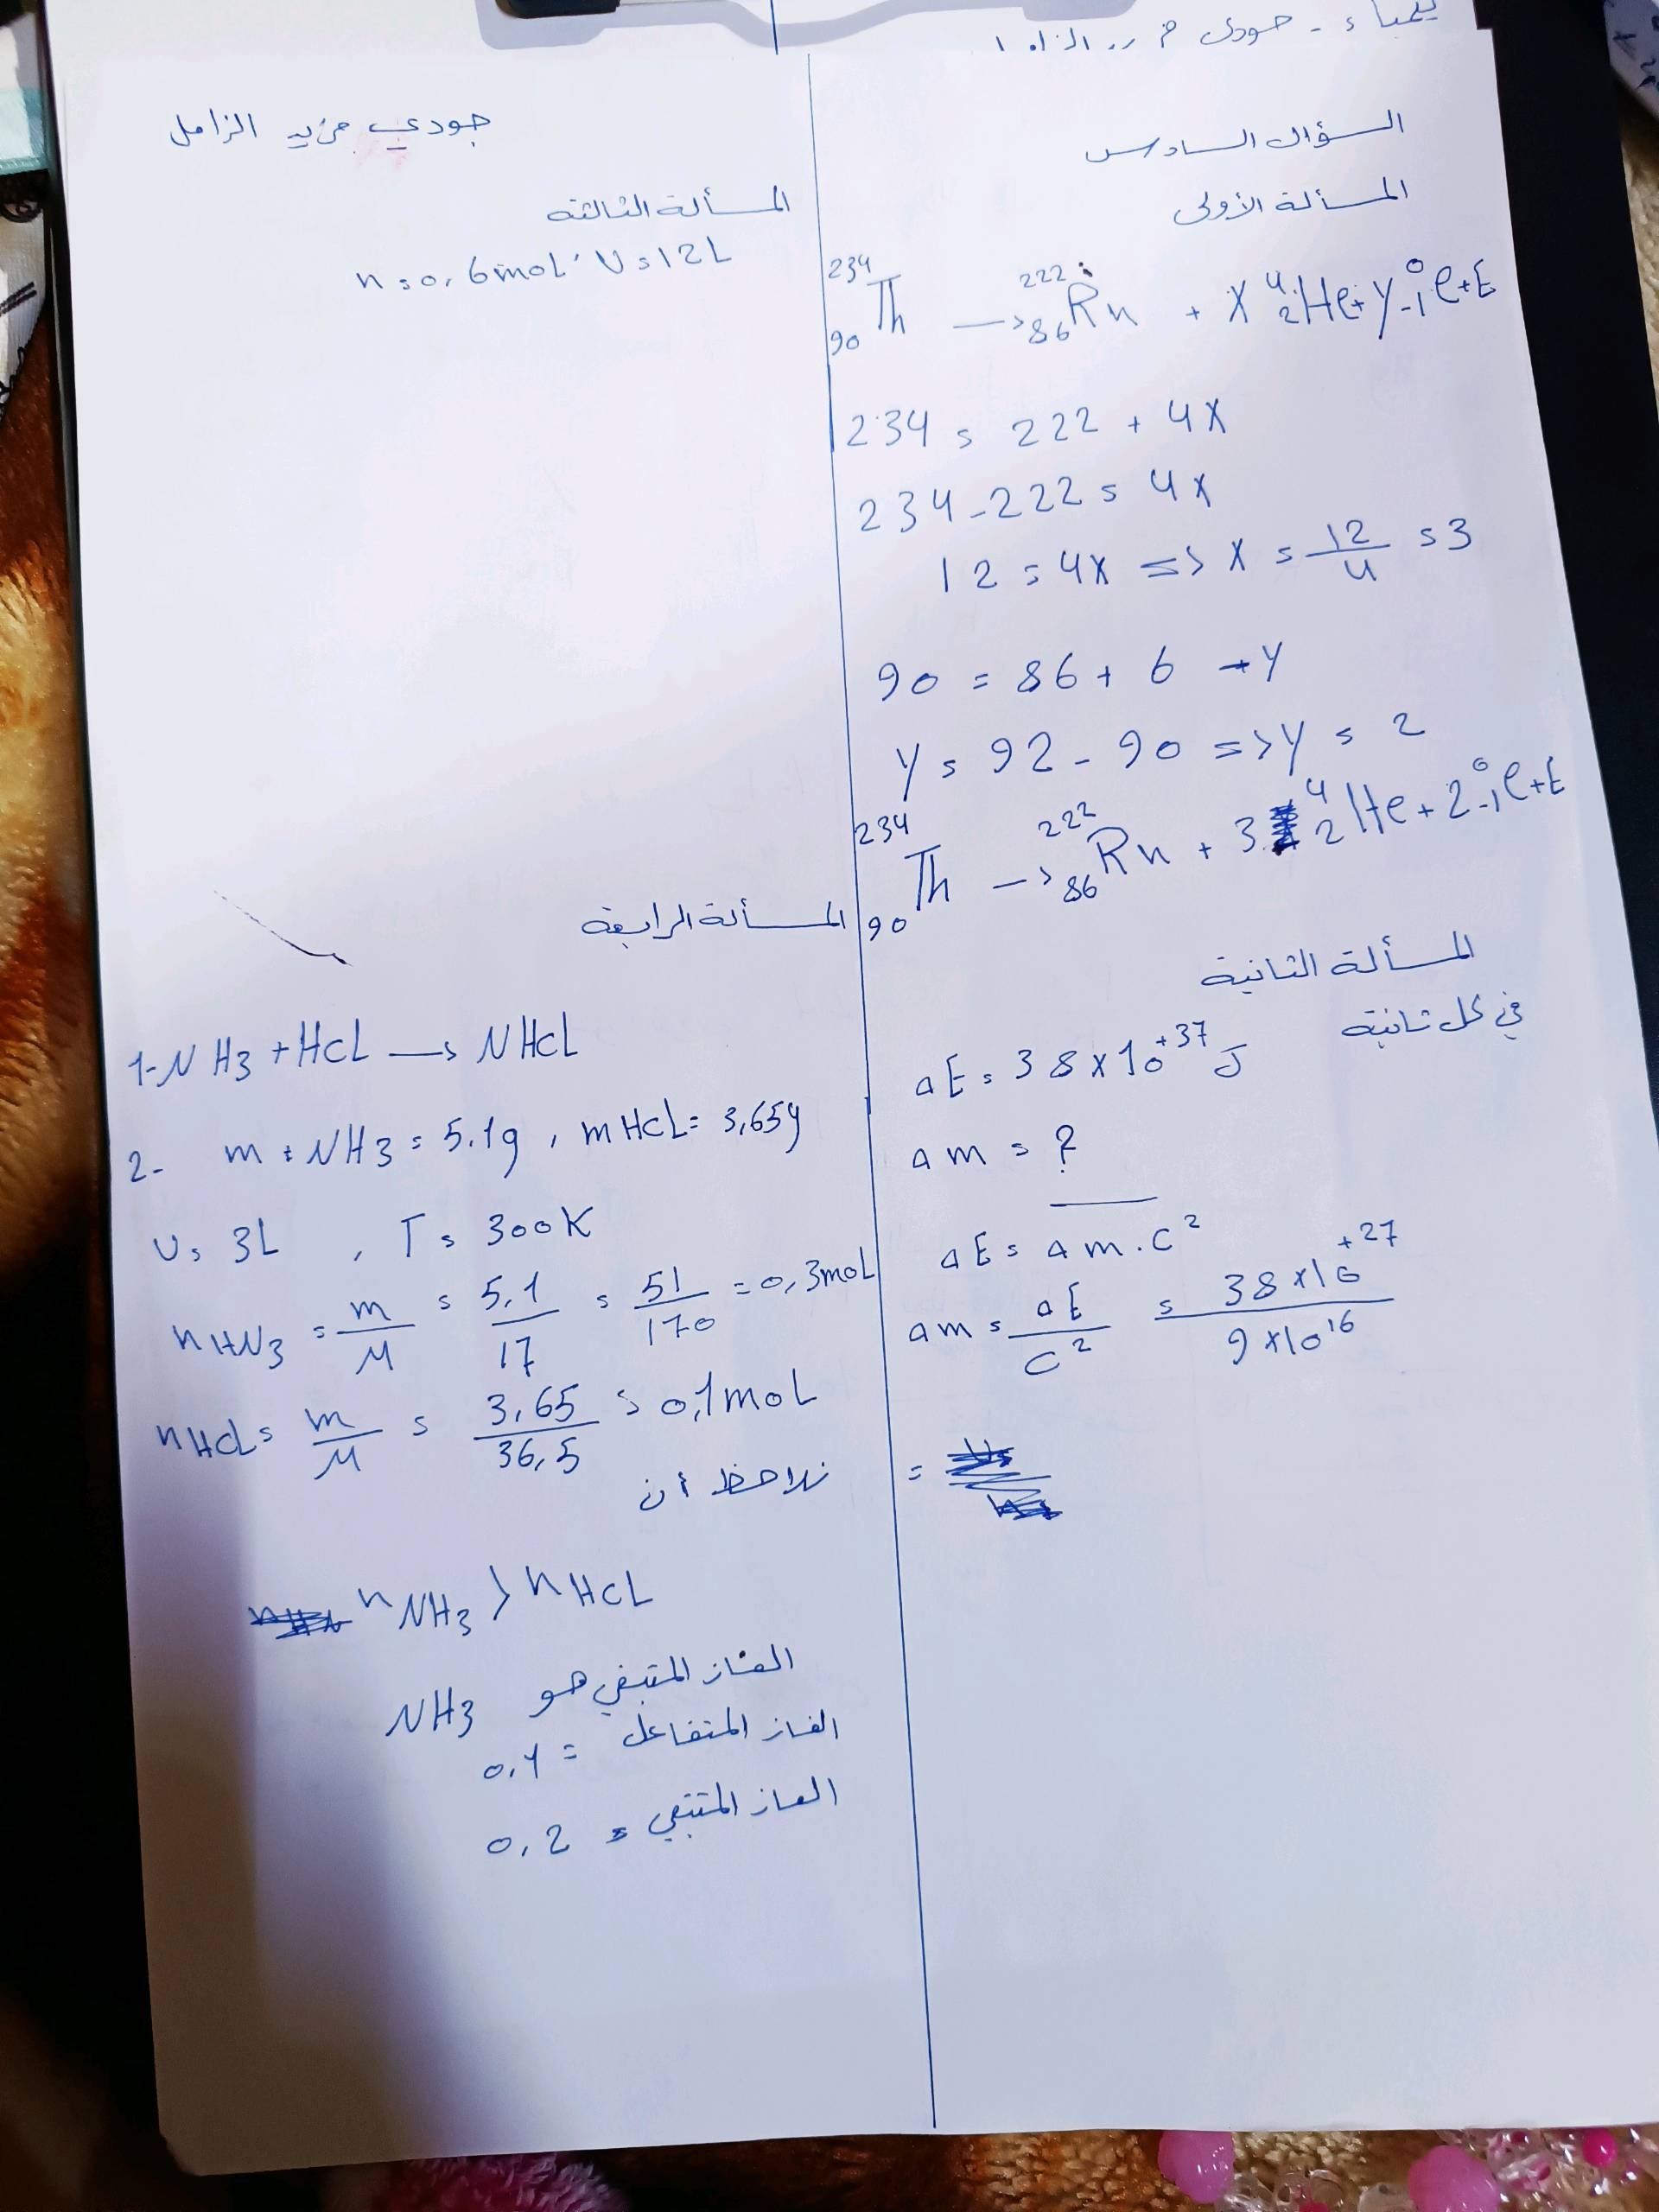 السؤال السادس
المسألة الأولى
²³⁴₉₀Th → ²²²₈₆Rn + X ⁴₂He + y ⁰₋₁e + E
234 = 222 + 4X
234 - 222 = 4X
12 = 4X => X = 12/4 = 3
90 = 86 + 6 - y
y = 92 - 90 => y = 2
²³⁴₉₀Th → ²²²₈₆Rn + 3 ⁴₂He + 2 ⁰₋₁e + E
المسألة الثانية
في كل ثانية
ΔE = 38 × 10⁺³⁷ J
Δm = ?
ΔE = Δm . C²
Δm = ΔE/C² = 38 × 10⁺²⁷/9 × 10¹⁶
=
جودي مزيد الزامل
المسألة الثالثة
n = 0,6 mol , V = 12L
المسألة الرابعة
1- NH3 + HCL → NHCL
2- m : NH3 = 5.1g , m HCL = 3,65g
V = 3L , T = 300K
nHN3 = m/M = 5,1/17 = 51/170 = 0,3moL
nHCL = m/M = 3,65/36,5 = 0,1moL
نلاحظ أن
n NH3 > n HCL
الغاز المتبقي هو NH3
الغاز المتفاعل = 0,1
الغاز المتبقي = 0,2